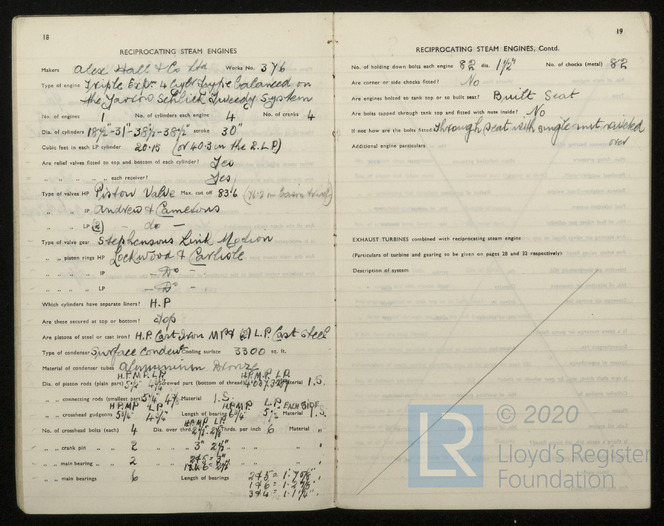 18
RECIPROCATING STEAM ENGINES
Makers Alex Hall & Co Ltd Works No. 376
Type of engine Triple Expn 4 Cylr type balanced on
the Yarrow Schlick Tweedy System
No. of engines 1 No. of cylinders each engine 4 No. of cranks 4
Dia. of cylinders 18½"-31"-38½"-38½" stroke 30"
Cubic feet in each LP cylinder 20.15 (or 40.3 in the 2. L.P)
Are relief valves fitted to top and bottom of each cylinder? Yes
" " " " each receiver? Yes
Type of valves HP Piston Valve Max. cut off 83.6
" " " IP Andrew & Camerons
" " " LP (2) - do -
Type of valve gear Stephensons Link Motion
" " piston rings HP Lockwood & Carlisle
" " " IP - Do -
" " " LP - Do -
Which cylinders have separate liners? H.P
Are these secured at top or bottom? Top
Are pistons of steel or cast iron? H.P. Cast Iron MP & (2) L.P. Cast Steel
Type of condenser Surface Condensr Cooling surface 3300 sq. ft.
Material of condenser tubes Aluminium Bronze
H.P. M.P. L.P. H.P. M.P. L.P.
Dia. of piston rods (plain part) Screwed part (bottom of thread) Material I.S.
" " connecting rods (smallest part) Material I.S.
H.P. M.P. L.P. H.P M.P L.P. EACH SIDE
" " crosshead gudgeons Length of bearing Material I.S.
H.P. M.P. L.P.
No. of crosshead bolts (each) 4 Dia. over thrd. Thrds. per inch 6 Material "
" " crank pin " 2 " " " 3" 2½" " " " "
" " main bearing " 2 " " "
" " main bearings 6 Lengths of bearings 2 & 5 =
1 & 6 =
3 & 4 =
19
RECIPROCATING STEAM ENGINES, Contd.
No. of holding down bolts each engine 82 dia. 1½" No. of chocks (metal) 82
Are corner or side chocks fitted? No
Are engines bolted to tank top or to built seat? Built Seat
Are bolts tapped through tank top and fitted with nuts inside? No
If not how are the bolts fitted Through seat with single nut riveted
over
Additional engine particulars
EXHAUST TURBINES combined with reciprocating steam engine
(Particulars of turbine and gearing to be given on pages 28 and 32 respectively)
Description of system
LR
© 2020
Lloyd's Register
Foundation